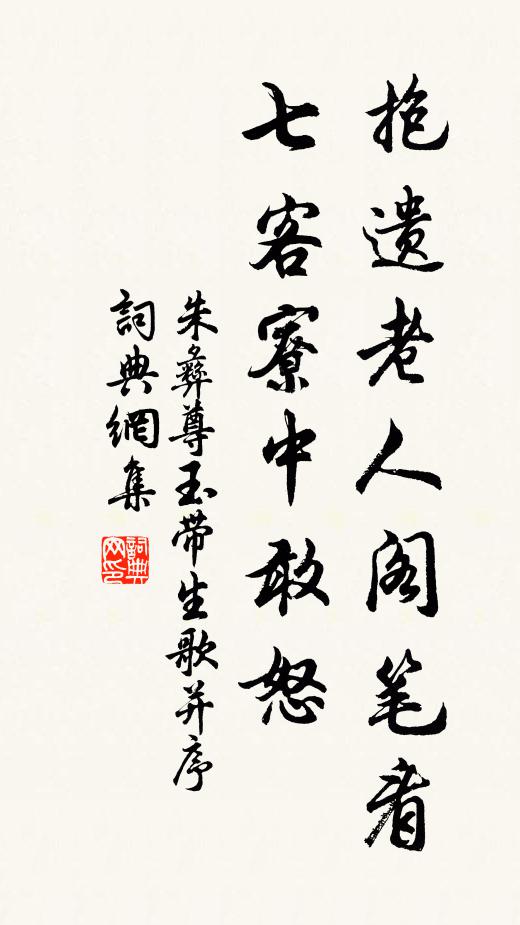 抱遗老人阁笔看
七客寮中敢怒
朱彝尊玉带生歌并序
詞典網集
詞典
网印